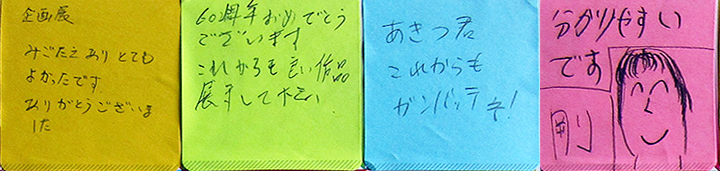 企画展
みごたえありとても
よかったです
ありがとうございま
した
60周年おめでとう
ございます
これからも良い作品
展示して下さい
あきつ君
これからも
ガンバッテネ!
分かりやすい
です
剛